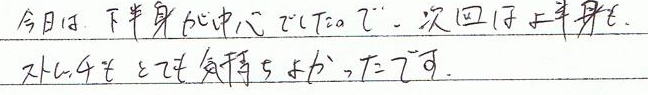 今日は、下半身が中心でしたので、次回は上半身も、
ストレッチもとても気持ちよかったです。